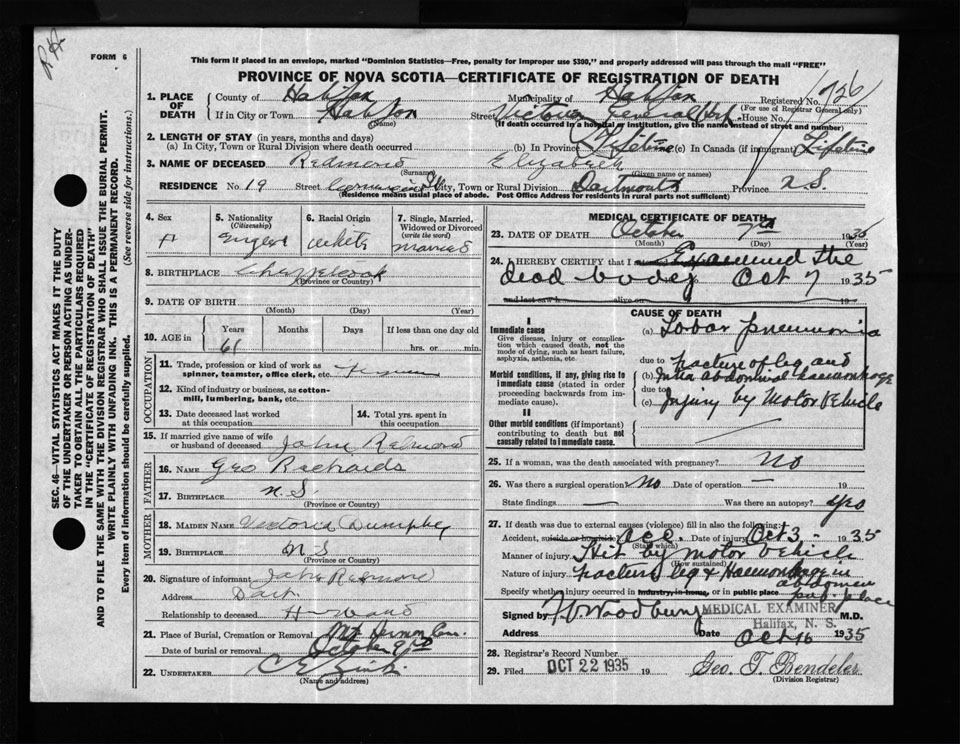 FORM 6
This form if placed in an envelope, marked "Dominion Statistics—Free, penalty for improper use $300," and properly addressed will pass through the mail "FREE"
PROVINCE OF NOVA SCOTIA—CERTIFICATE OF REGISTRATION OF DEATH
1. PLACE OF DEATH
County of Halifax Municipality of Halifax Registered No. 726
(For use of Registrar General only)
If in City or Town Halifax Street Victoria General Hosp. House No.
(Name) (If death occurred in a hospital or institution, give the name instead of street and number)
2. LENGTH OF STAY (in years, months and days)
(a) In City, Town or Rural Division where death occurred (b) In Province Lifetime (c) In Canada (if immigrant) Lifetime
3. NAME OF DECEASED Redmond Elizabeth
(Surname) (Given name or names)
RESIDENCE No. 19 Street St City, Town or Rural Division Dartmouth Province N.S.
(Residence means usual place of abode. Post Office Address for residents in rural parts not sufficient)
4. Sex F
5. Nationality (Citizenship) English
6. Racial Origin white
7. Single, Married, Widowed or Divorced (write the word) married
8. BIRTHPLACE Chezzetcook
(Province or Country)
9. DATE OF BIRTH
(Month) (Day) (Year)
10. AGE in Years 61 Months Days If less than one day old
hrs. or min.
OCCUPATION
11. Trade, profession or kind of work as spinner, teamster, office clerk, etc.
12. Kind of industry or business, as cotton-mill, lumbering, bank, etc.
13. Date deceased last worked at this occupation
14. Total yrs. spent in this occupation
15. If married give name of wife or husband of deceased John Redmond
FATHER
16. NAME Geo Richards
17. BIRTHPLACE N.S.
(Province or Country)
MOTHER
18. MAIDEN NAME Victoria Dumphy
19. BIRTHPLACE N S
(Province or Country)
20. Signature of informant John Redmond
Address Dart.
Relationship to deceased Husband
21. Place of Burial, Cremation or Removal Mt Hermon Cem.
Date of burial or removal October 9th
22. UNDERTAKER C E Zink
(Name and address)
MEDICAL CERTIFICATE OF DEATH
23. DATE OF DEATH October 7th 1935
(Month) (Day) (Year)
24. I HEREBY CERTIFY that I Examined the
dead body Oct 7 1935
and last saw h alive on 19
CAUSE OF DEATH
I
Immediate cause
Give disease, injury or complication which caused death, not the mode of dying, such as heart failure, asphyxia, asthenia, etc.
(a) Lobar pneumonia
due to
Morbid conditions, if any, giving rise to immediate cause (stated in order proceeding backwards from immediate cause).
(b) fracture of leg and
Intra abdominal haemorrhage
due to
(c) Injury by Motor Vehicle
II
Other morbid conditions (if important) contributing to death but not causally related to immediate cause.
25. If a woman, was the death associated with pregnancy? No
26. Was there a surgical operation? No Date of operation — 19
State findings — Was there an autopsy? Yes
27. If death was due to external causes (violence) fill in also the following:
Accident, suicide or homicide acc. Date of injury Oct 3 - 1935
(State which)
Manner of injury Hit by motor vehicle
(How sustained)
Nature of injury fracture leg & Haemorrhage in abdomen
Specify whether injury occurred in industry, in home, or in public place pub. place
Signed by M.D.
MEDICAL EXAMINER
Halifax, N. S.
Address Date Oct 16 1935
28. Registrar's Record Number
29. Filed OCT 22 1935 19 Geo. T. Bendeler
(Division Registrar)
SEC. 46—VITAL STATISTICS ACT MAKES IT THE DUTY
OF THE UNDERTAKER OR PERSON ACTING AS UNDER-
TAKER TO OBTAIN ALL THE PARTICULARS REQUIRED
IN THE "CERTIFICATE OF REGISTRATION OF DEATH"
AND TO FILE THE SAME WITH THE DIVISION REGISTRAR WHO SHALL ISSUE THE BURIAL PERMIT.
WRITE PLAINLY WITH UNFADING INK. THIS IS A PERMANENT RECORD.
Every item of information should be carefully supplied. (See reverse side for instructions.)